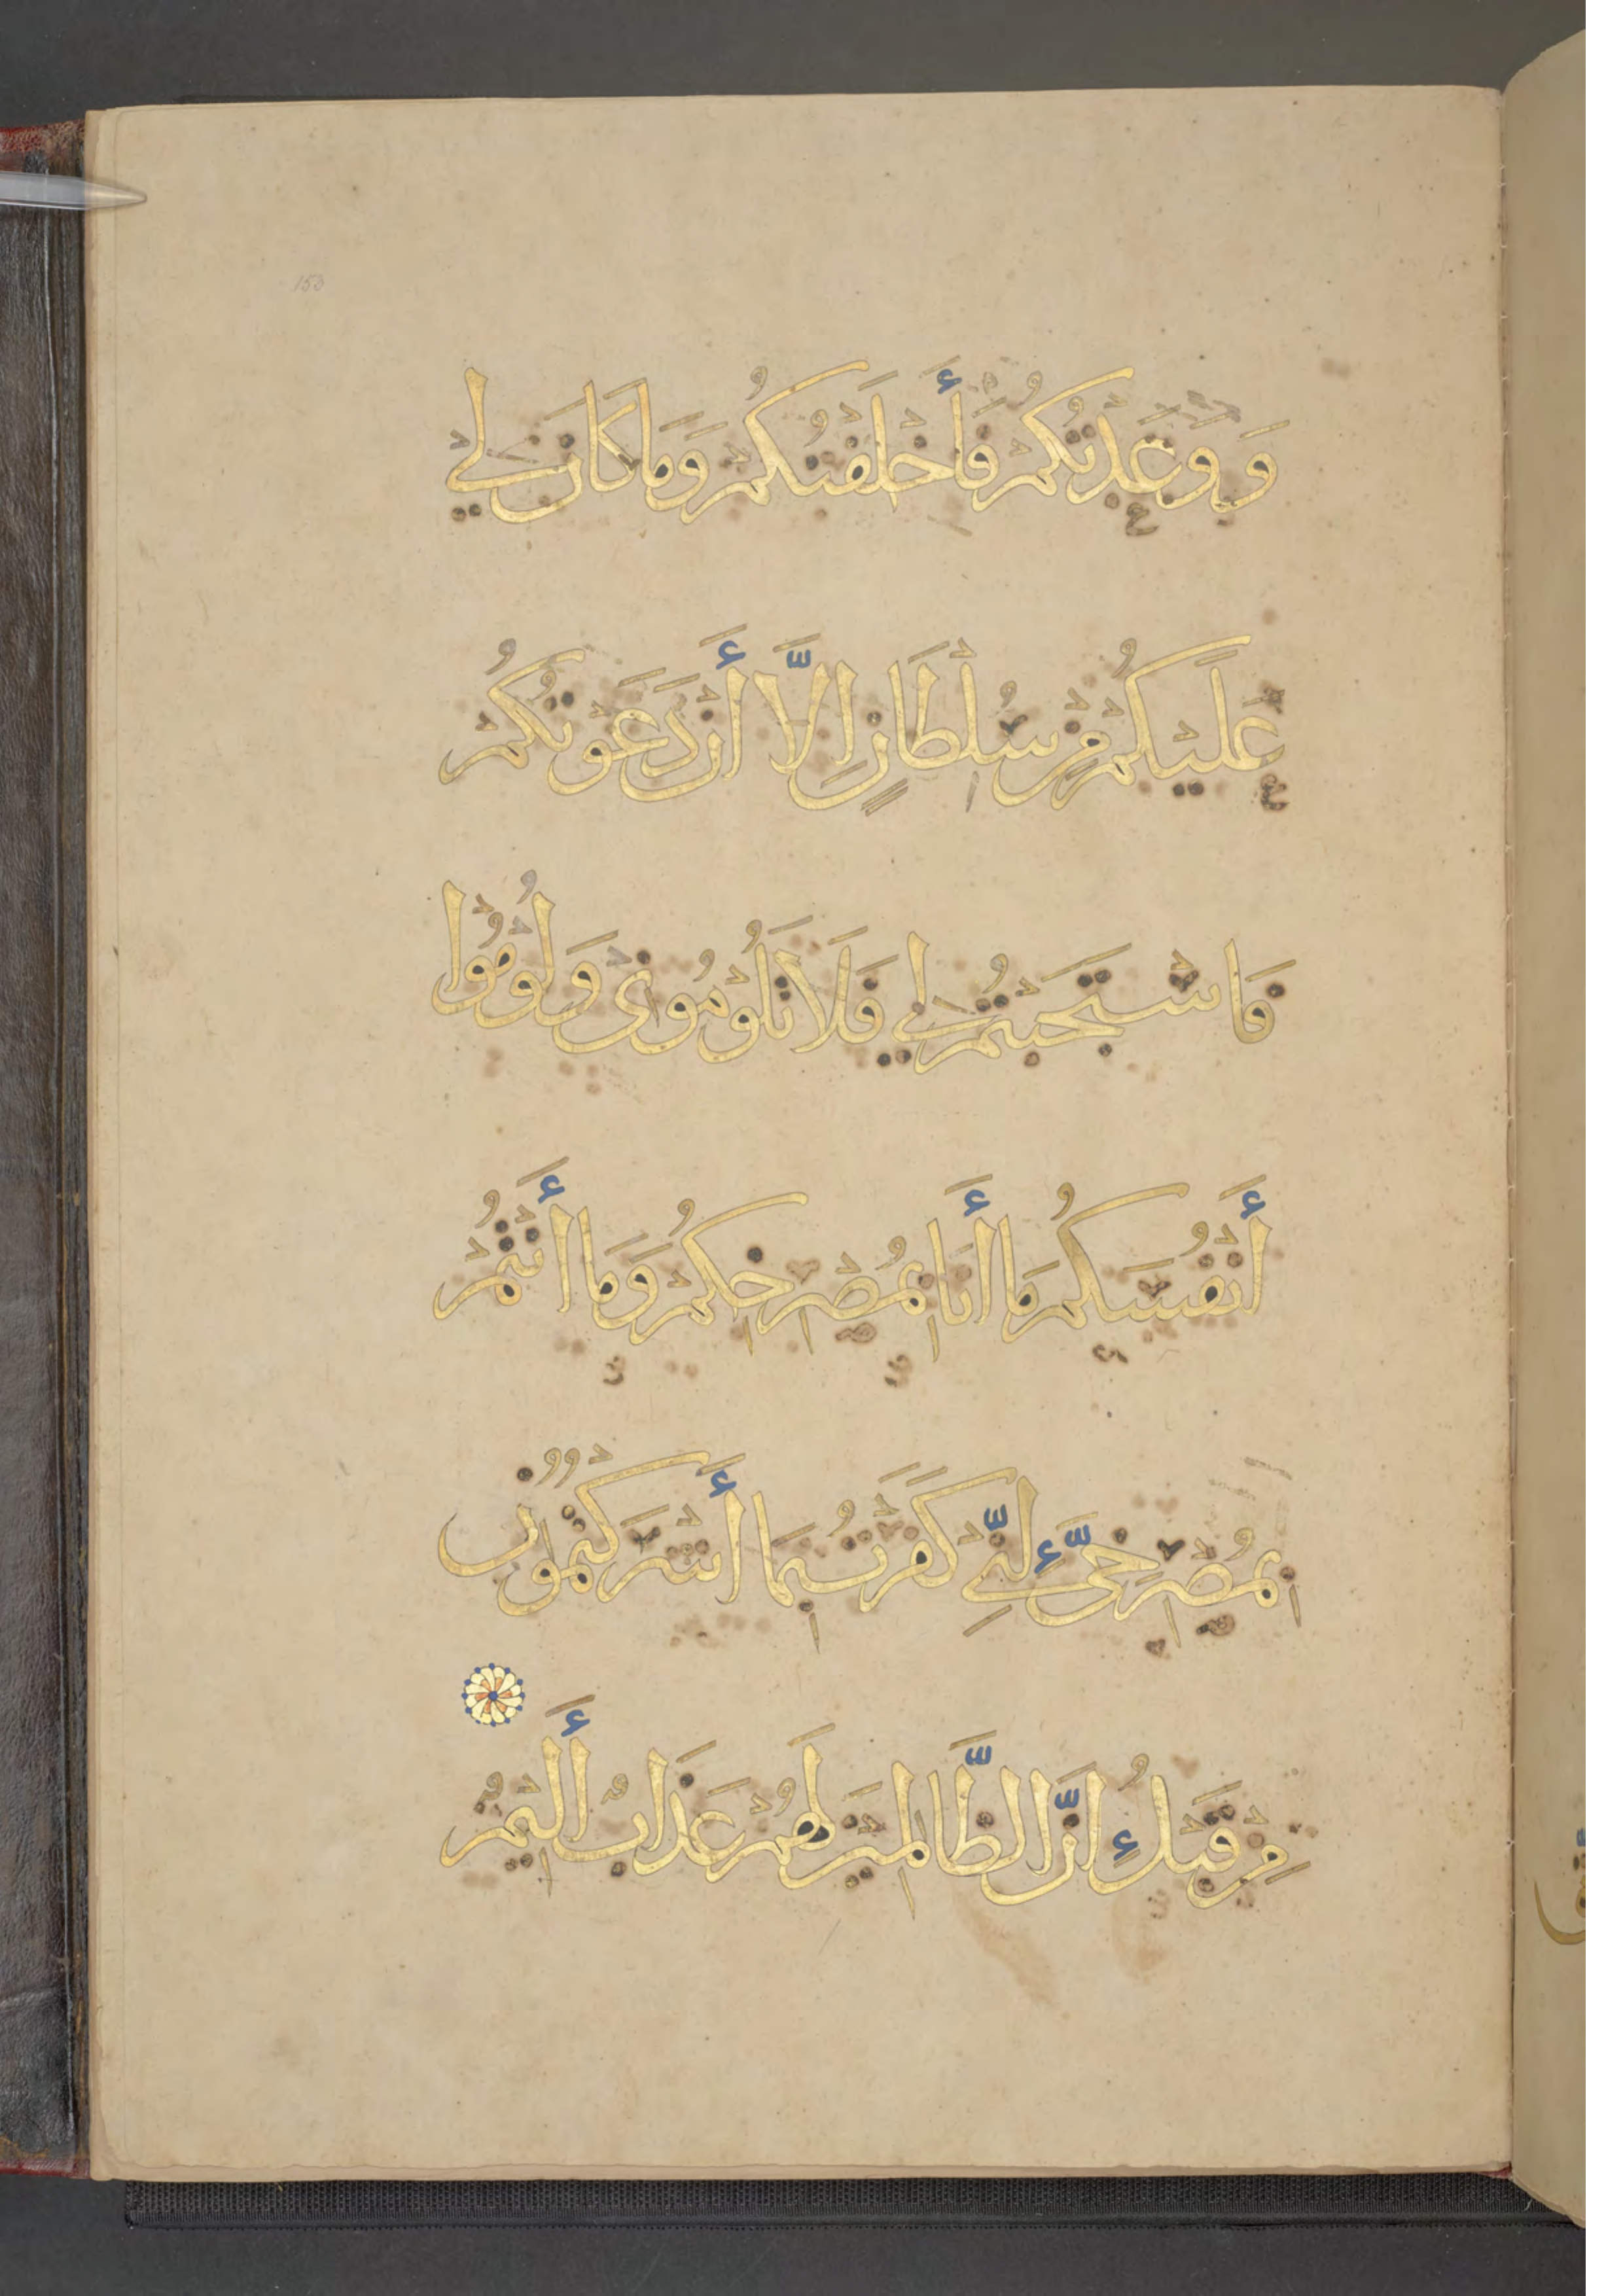 153
وَوَعَدْتُكُمْ فَأَخْلَفْتُكُمْ وَمَا كَانَ لِي
عَلَيْكُمْ مِنْ سُلْطَانٍ إِلَّا أَنْ دَعَوْتُكُمْ
فَاسْتَجَبْتُمْ لِي فَلَا تَلُوْمُونِي وَلُوْمُوْا
أَنْفُسَكُمْ مَا أَنَا بِمُصْرِخِكُمْ وَمَا أَنْتُمْ
بِمُصْرِخِيَّ إِنِّي كَفَرْتُ بِمَا أَشْرَكْتُمُوْنِ
مِنْ قَبْلُ إِنَّ الظَّالِمِيْنَ لَهُمْ عَذَابٌ أَلِيْمٌ